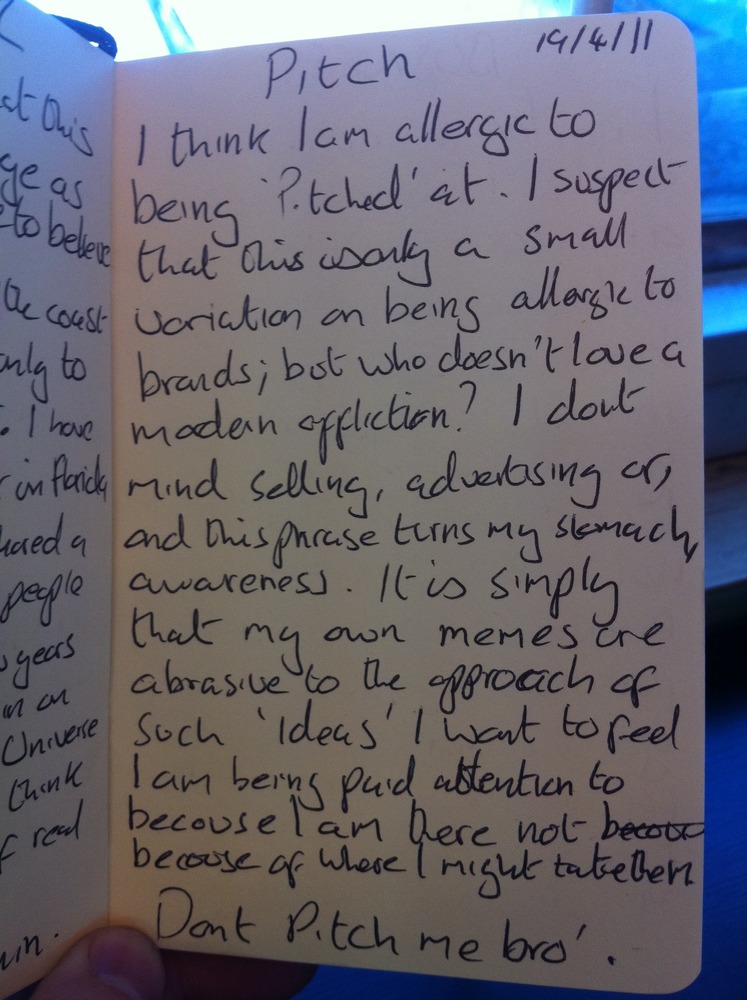 at this
ge as
to believe
the coast
only to
. I have
in florida
hared a
people
years
in an
Universe
think
f real
Pitch
19/4/11
I think I am allergic to
being 'Pitched' at. I suspect
that this is only a small
variation on being allergic to
brands; but who doesn't love a
modern affliction? I dont
mind selling, advertising or,
and this phrase turns my stomach,
awareness. It is simply
that my own memes are
abrasive to the approach of
such 'Ideas' I want to feel
I am being paid attention to
because I am there not
because of where I might take them
Dont Pitch me bro'.